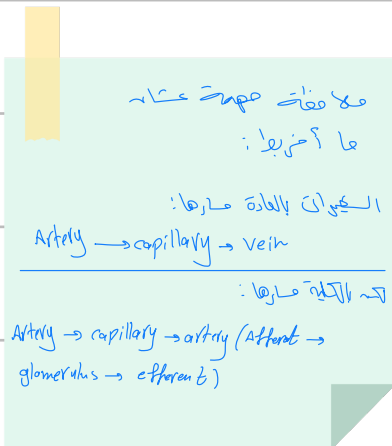 ملاحظة مهمة عشان
ما أخربط :
الشعيرات بالعادة مسارها :
Artery → capillary → vein
بالكلية مسارها :
Artery → capillary → artery (Afferent →
glomerulus → efferent)